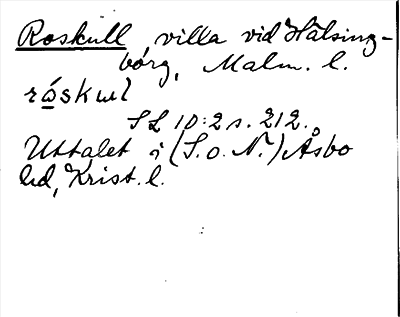 Roskull villa vid Hälsing-
borg, Malm. l.
råskul
SL 10:2 s. 212.
Uttalet i (S. o. N.) Åsbo
hd, Krist. l.